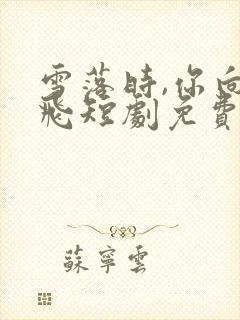 雪落時,你向
飛短劇免費
蘇寧雲